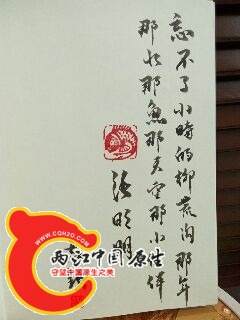 忘不了小时的柳荒沟那年
那水那鱼那天空那小伴
张明明
WWW.CQH20.COM
两江中国原生
守望中国原生之美